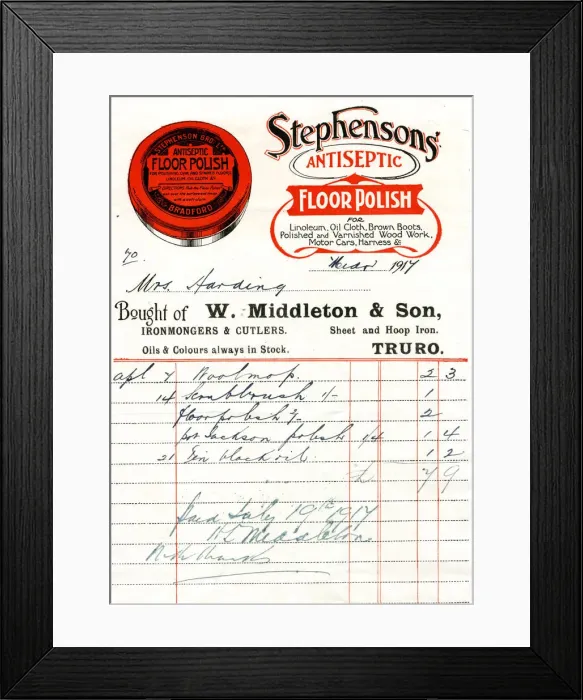 STEPHENSON BRO. LTD
ANTISEPTIC
FLOOR POLISH
BRADFORD
Stephensons'
ANTISEPTIC
FLOOR POLISH
FOR
Linoleum, Oil Cloth, Brown Boots,
Polished and Varnished Wood Work,
Motor Cars, Harness &c
70. 1917
Mrs. Harding
Bought of W. Middleton & Son,
IRONMONGERS & CUTLERS. Sheet and Hoop Iron.
Oils & Colours always in Stock. TRURO.
apl 7 Woolmop. 2 3
14 Scrubbrush 1/- 1
floorpolish 2/- 2
Jackson polish 1 4
21 Tin black oil. 1 2
7 9
Paid July 19th 1917
Middleton